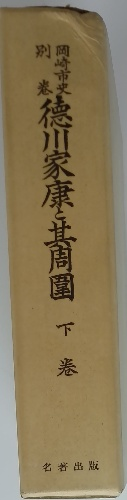 岡崎市史
別巻
徳川家康と其周圍
下巻
名著出版